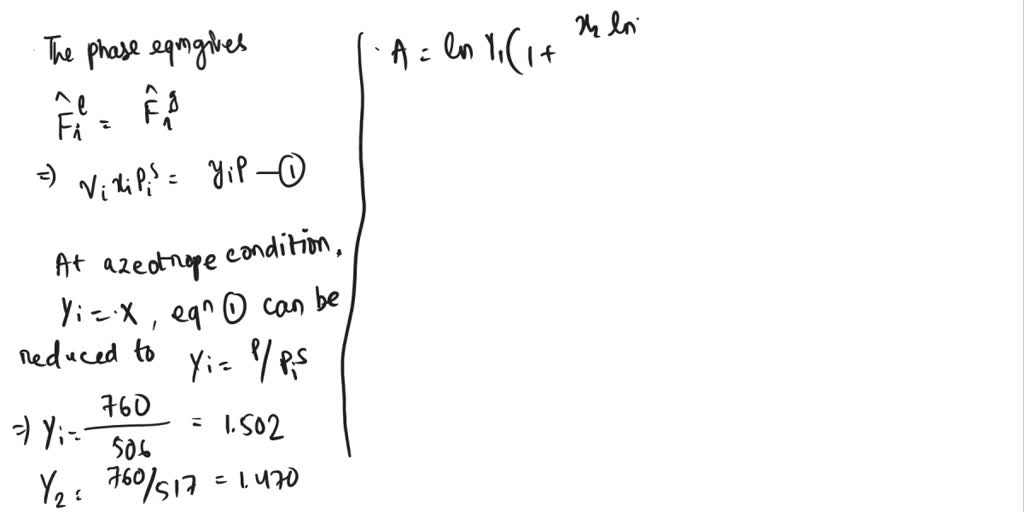 The phase eqm gives
F̂iˡ = F̂iᵍ
⇒ γi xi Piˢ = yi P — ①
At azeotrope condition,
Yi = x, eqⁿ ① can be
reduced to γi = P/Piˢ
⇒ γi = 760/506 = 1.502
γ2 = 760/517 = 1.470
A = ln γ1 (1 + x2 ln